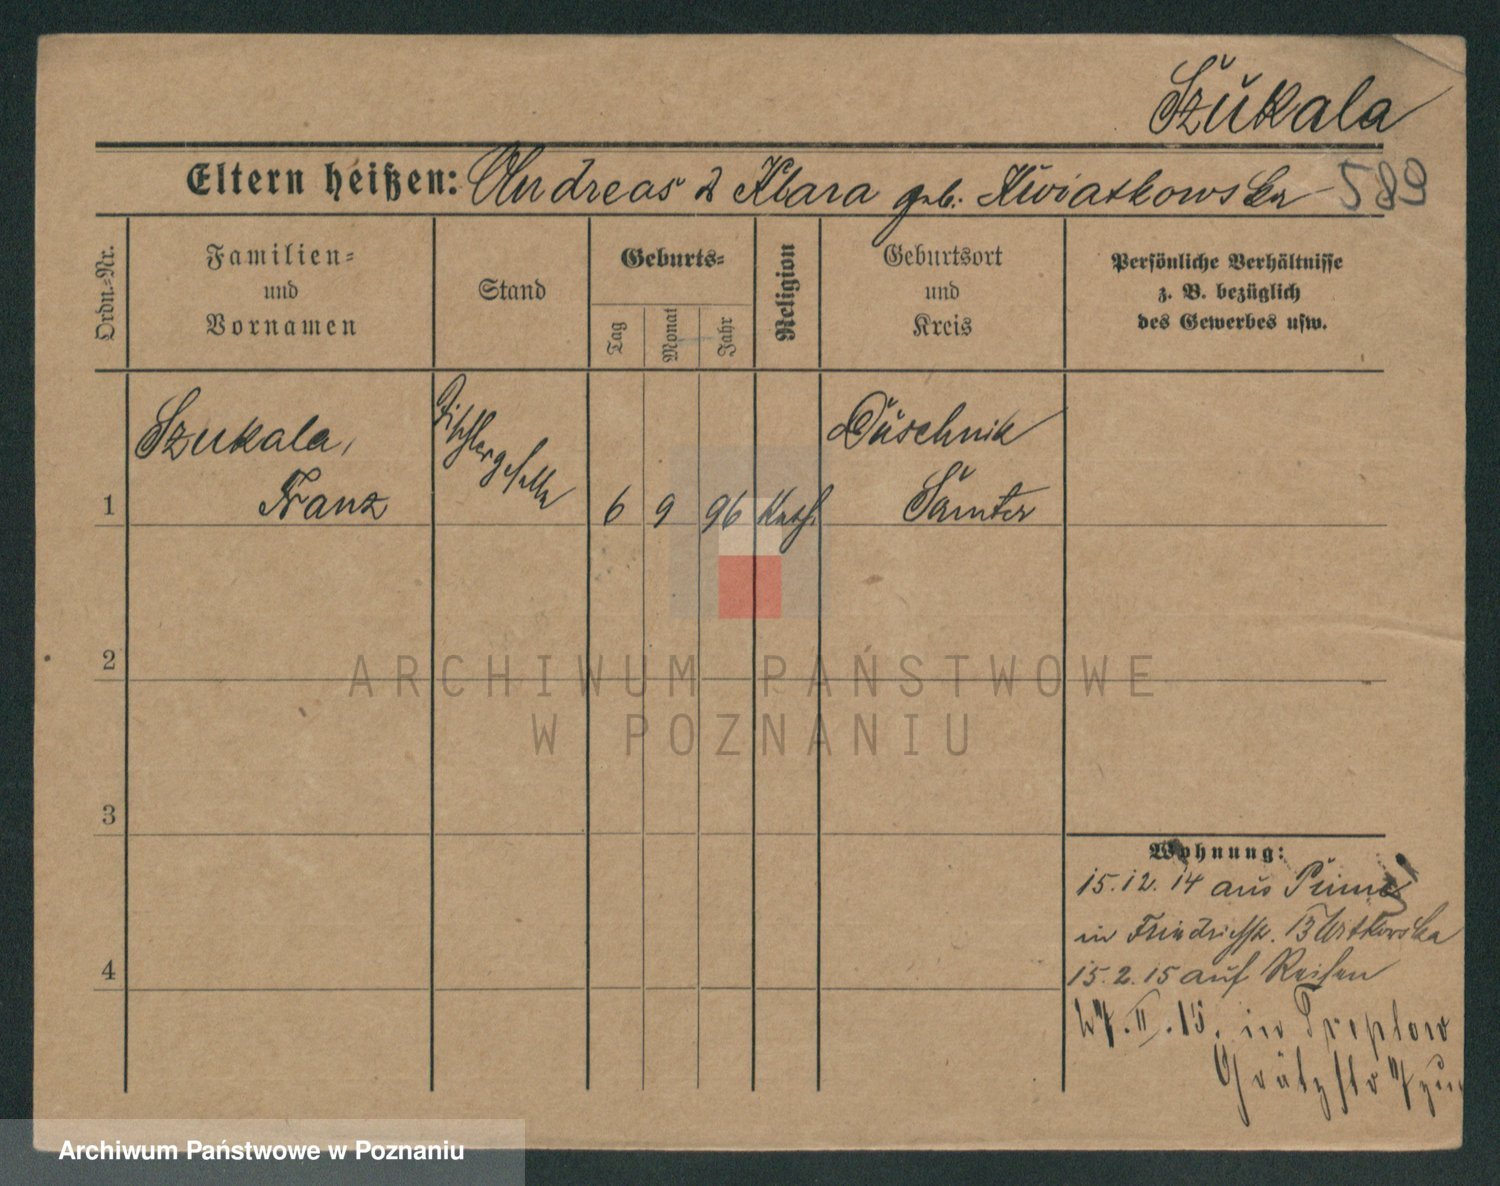 Szukala
Eltern heißen: Andreas & Klara geb. Kwiatkowska 589
Ordn.-Nr.
Familien-
und
Vornamen
Stand
Geburts-
Tag
Monat
Jahr
Religion
Geburtsort
und
Kreis
Persönliche Verhältnisse
z. B. bezüglich
des Gewerbes usw.
Szukala,
Franz
Tischlergeselle
1
6 9 96 Kath.
Duschnik
Samter
2
ARCHIWUM PAŃSTWOWE
W POZNANIU
3
4
Wohnung:
15.12.14 aus Pinne
in Friedrichstr. 13
15.2.15 auf Reisen
27.II.15. in Treptow
Grätzstr
Archiwum Państwowe w Poznaniu